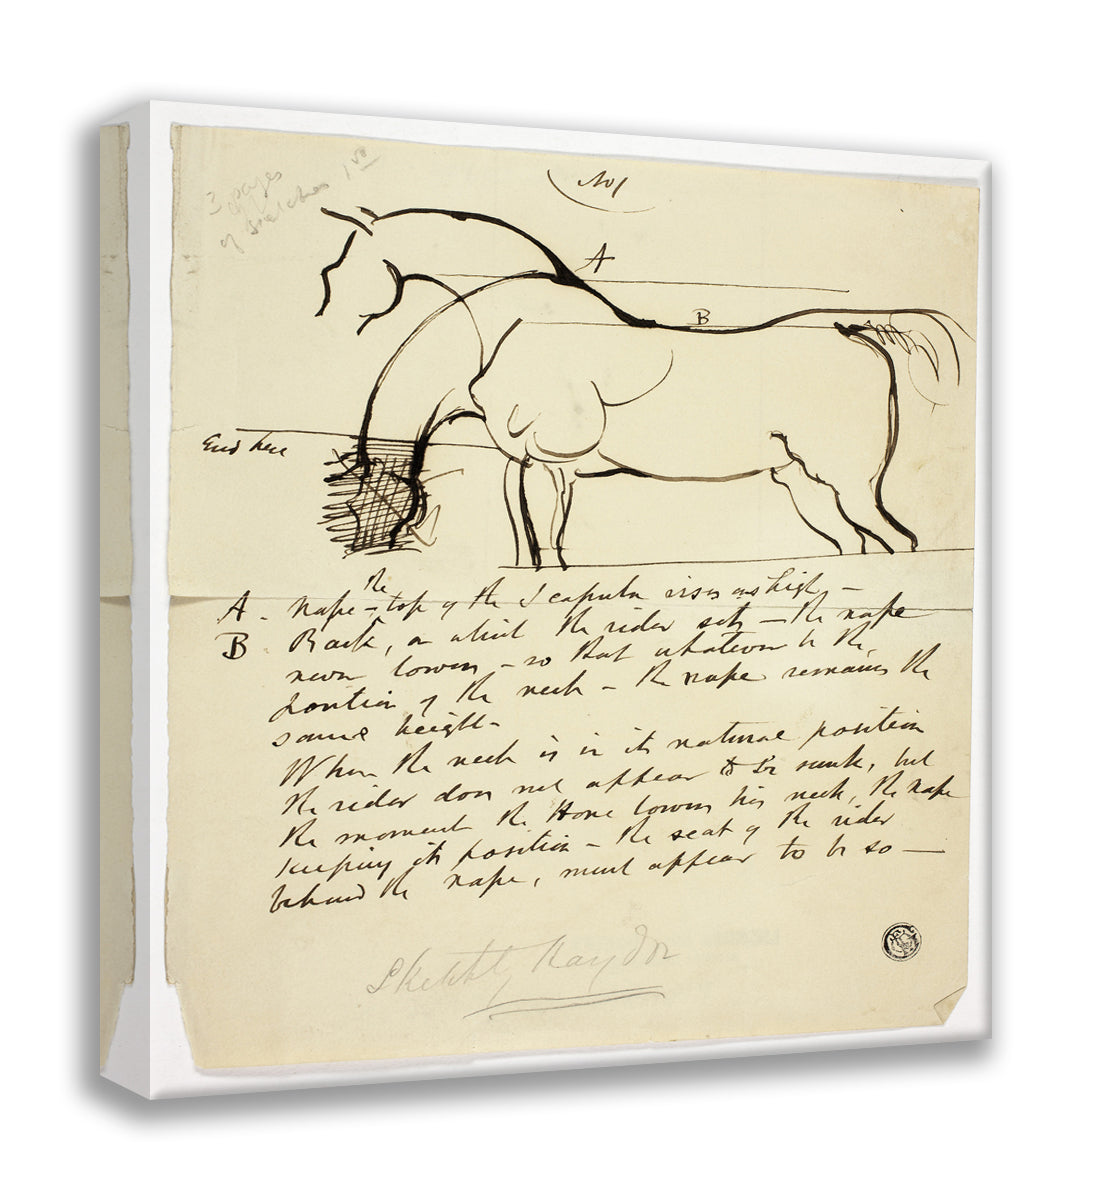 3 pages
of sketches 1
No 1
A
B
End here
the
A. nape - top of the Scapula rises as high -
B Back, on which the rider sits - the nape
never lowers - so that whatever be the
position of the neck - the nape remains the
same height -
When the neck is in its natural position
the rider does not appear to be sunk, but
the moment the Horse lowers his neck, the nape
keeping its position - the seat of the rider
behind the nape, must appear to be so -
Sketch by Haydon